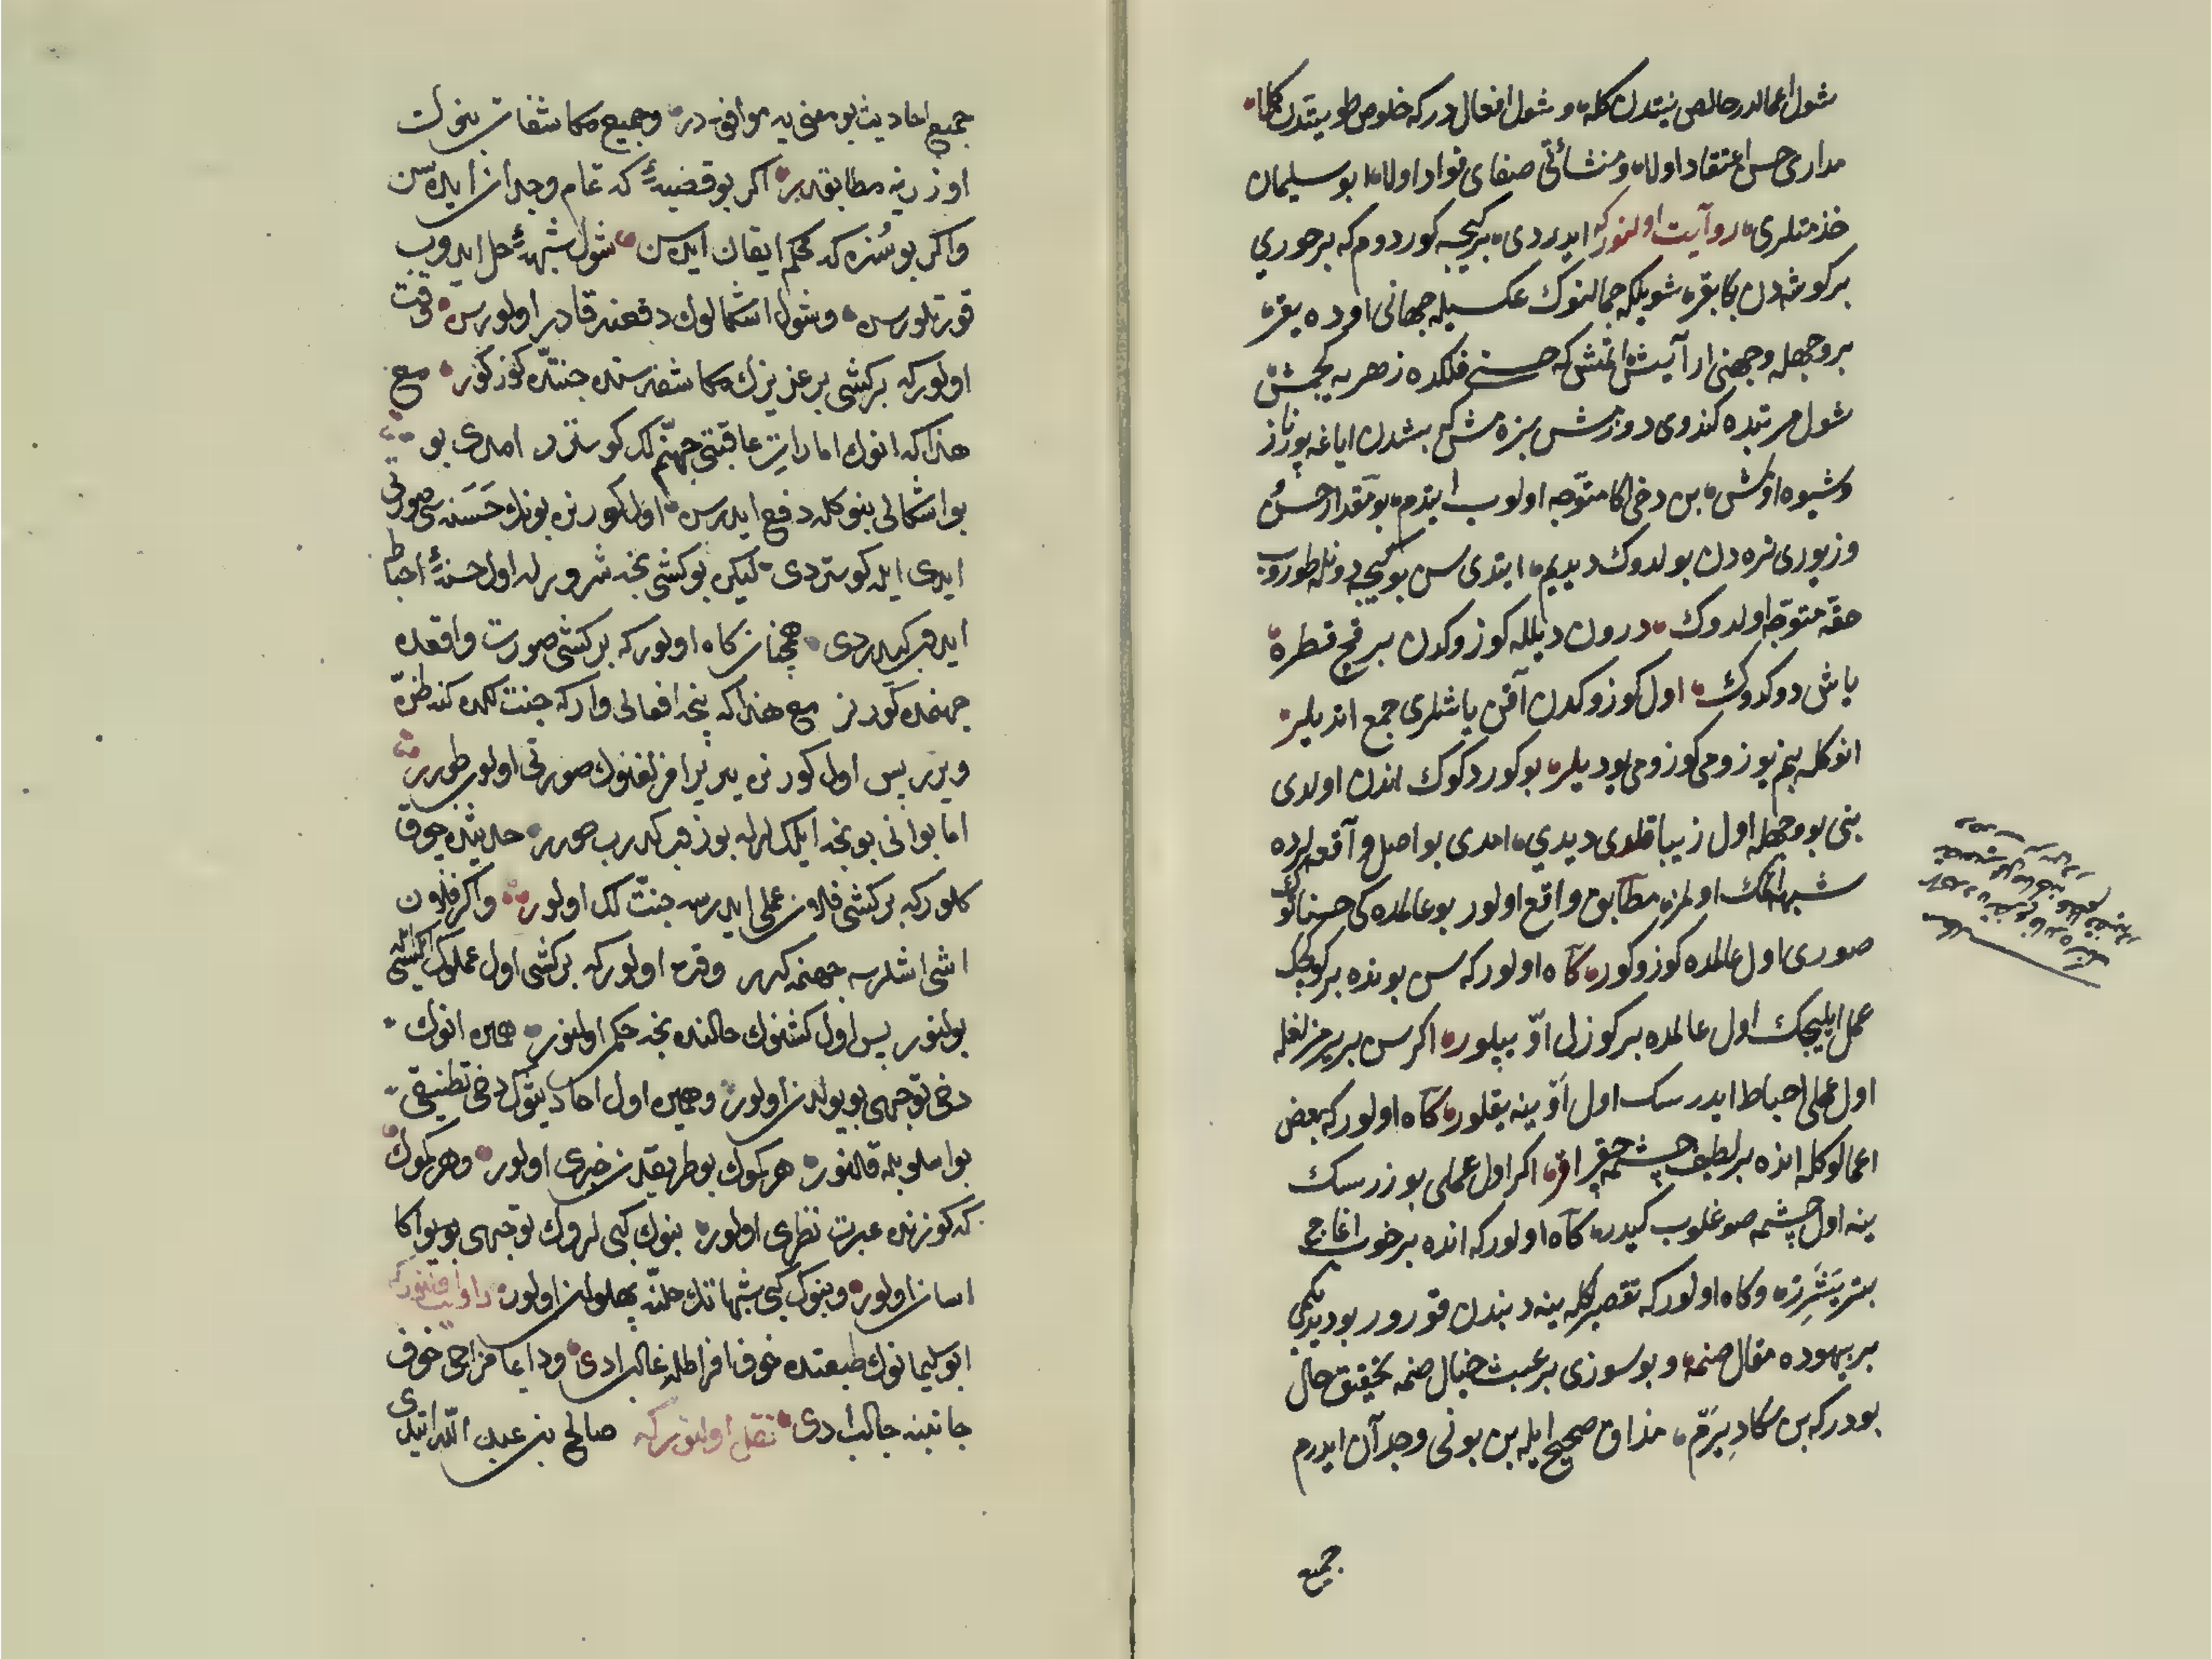 شول اعمالدر خالص نیتدن کله و شول افعال در که خلوص طویتدن کله
مداری حسن اعتقاد اولا و منشائی صفای فواد اولا ابو سلیمان
خذمتلری روآیت اولنور که ایدردی بر کیجه کوردوم که بر حوری
بر کوشه دن بکا بقر شویله که جمالنوک عکسیله جهانی اوده یقر
بر وجهله وجهنی آرایش اتمش که حسنی فلکده زهره یه
شول مرتبده کندوی دوزمش بزه مش که بشدن ایاغه پور ناز
و شیوه اولمش بن دخی اکا متوجه اولوب ایتدم بو مقدار حسن
و زیوری نره دن بولدوک دیدیم ایتدی سن بو کیجه دونله طوروب
حقه متوجه اولدوک درون دلله کوزوکدن بر قچ قطره
یاش دوکدوک اول کوزوکدن آقن یاشلری جمع اتدیلر
انوکله بنم یوزومی کوزومی یودیلر بو کوردکوک اندن اولدی
بنی بو وجهله اول زیبا قلدی دیدی امدی بو اصل وآقعه لرده
شبهه اتمک اولمز مطابق واقع اولور بو عالمده کی حسناتوک
صوری اول عالمده کوزوکور کآه اولور که سن بونده بر کوچک
عمل ایلیجک اول عالمده بر کوزل او یپلور اکر سن بر یرمزلغله
اول عملی احباط ایدرسک اول او ینه یقلور کآه اولور که بعض
اعمالوکله انده بر لطیف چشمه چقر اقر اکر اول عملی بوزرسک
ینه اول چشمه صوغلوب کیدر کآه اولور که انده بر خوب اغاج
بتر یشرر وکاه اولور که تقصیرکله ینه دبندن قورور بو دیدیکمی
بر بیهوده مقال صنمه و بو سوزی بر عبث خیال صنمه تحقیق حال
بودر که بن سکا دیرم مذاق صحیح ایله بن بونی وجدآن ایدرم
جمیع
جمیع احادیث بو معنی یه موافق در وجمیع مکاشفات بنوک
اوزرینه مطابقدر اکر بو قضیه ئ که تمام وجدان ایده سن
واکر بو سزه که محکم ایقان ایده سن شول شبهه ئ حل ایدوب
قورتلورسن وشول اشکالوک دفعنه قادر اولورسن وقت
اولور که بر کشی بر عزیزک مکاشفه سنده جنتده کوزکور مع
هذا که انوک اماراتی عاقبتی جهنملک کوستر امدی بو
بو اشکالی بنوکله دفع ایدرسن اول کورنن بونک حسنه سی صورتی
ایدی ایله کوستردی لیکن بو کشی نجه شرور له اول حسنه ئ احباط
ایدب کیدردی همچنان کاه اولور که بر کشی صورت واقعده
جهنمده کورنر مع هذا که نجه افعالی وار که جنت
ویرر پس اول کورنن یرمزلغنوک صورتی اولوب طورر
اما بو انی بو نجه ایلکلرله بوزب کدرب طورر حدیثده چوق
کلور که بر کشی فلان عملی ایدرسه جنتلک اولور واکر فلان
اشی اشلرسه جهنمه کرر وقت اولور که بر کشی اول عملوک ایکسی
بولنور پس اول کشنوک حالنده نجه حکم اولنور همین انوک
دخی توجهی بو یولدن اولور وهمین اول احادیثوک دخی تطبیقی
بو اسلوبله قالنور هر کموک بو طریقدن خبری اولور وهر کموک
که کوزنده عبرت نظری اولور بنوک کبی لروک توجهی بویوا کا
اسان اولور وبنوک کبی شبهاتک حلنه پهلوان اولور راوایت اولنور که
ابو سلیمانوک طبیعتنده خوف افراطله غالب ادی ودایما مزاجی خوف
جانبنه جالب ادی نقل اولنور که صالح بن عبد الله ایتدی